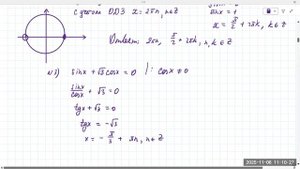 с учетом ОДЗ x = 2πn, n∈Z
sin x = 1
x = π/2 + 2πk, k∈Z
Ответ: 2πn, π/2 + 2πk, n, k ∈ Z
sinx + √3 cosx = 0 | : cosx ≠ 0
sinx/cosx + √3 = 0
tgx + √3 = 0
tgx = -√3
x = - π/3 + πn, n∈Z
2025-11-06 11:10:27